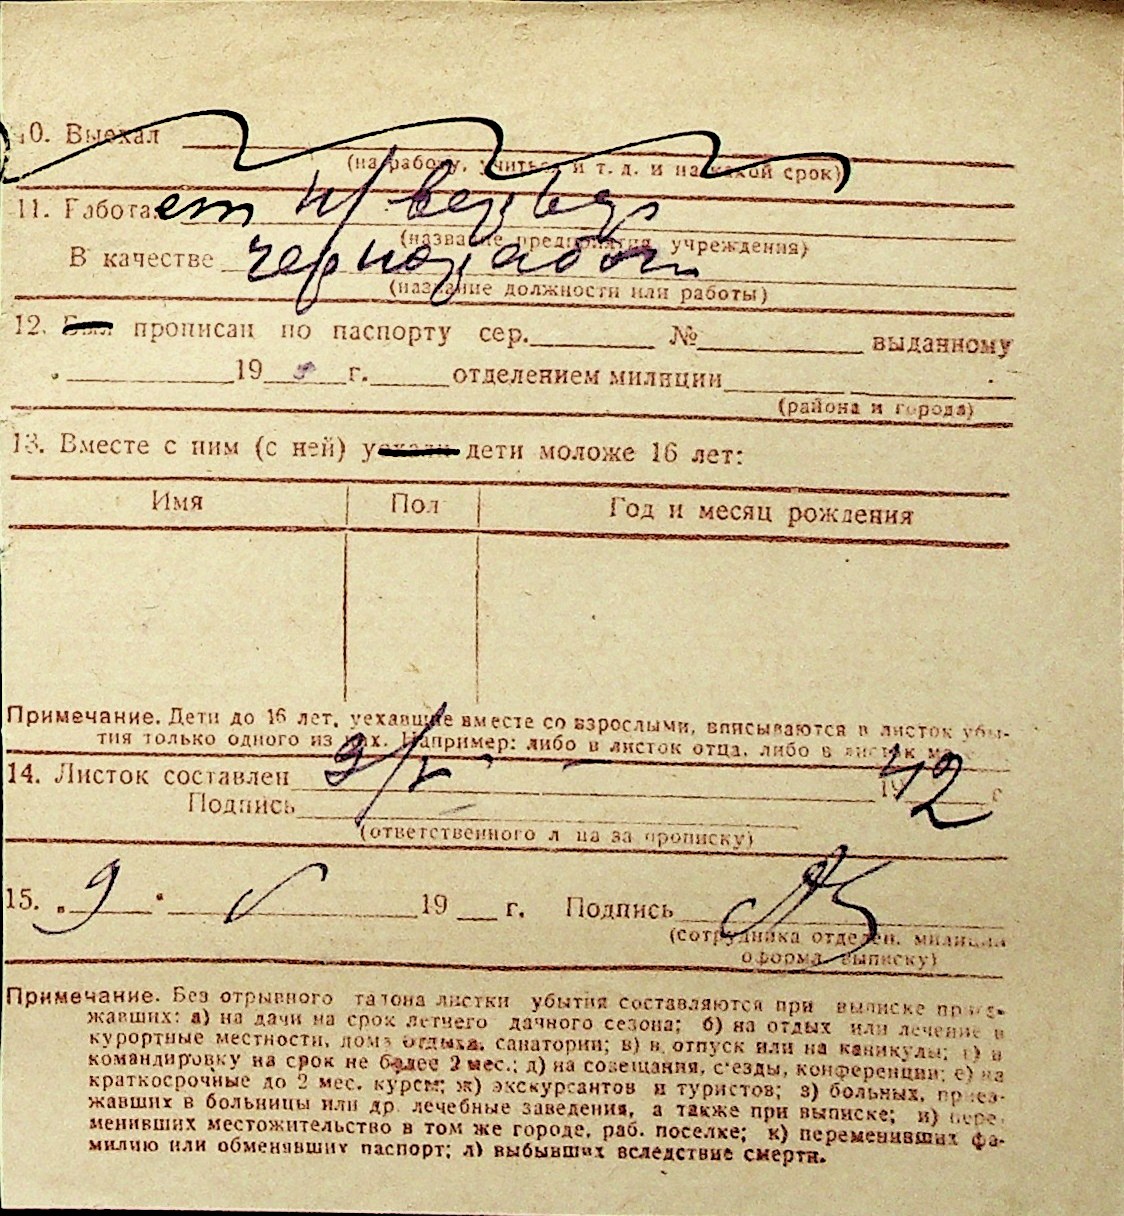 10. Выехал
(на работу, учиться и т. д. и на какой срок)
11. Работает
(название предприятия учреждения)
В качестве чернорабоч
(название должности или работы)
12. Был прописан по паспорту сер. № выданному
19 г. отделением милиции
(района и города)
13. Вместе с ним (с ней) уехали дети моложе 16 лет:
Имя Пол Год и месяц рождения
Примечание. Дети до 16 лет, уехавшие вместе со взрослыми, вписываются в листок убы-
тия только одного из них. Например: либо в листок отца, либо в листок
14. Листок составлен 9/V 1942 г
Подпись
(ответственного лица за прописку)
15. „9" V 19 г. Подпись
(сотрудника отделен. милиции
оформл. выписку)
Примечание. Без отрывного талона листки убытия составляются при выписке приез-
жавших: а) на дачи на срок летнего дачного сезона; б) на отдых или лечение в
курортные местности, дома отдыха, санатории; в) в отпуск или на каникулы; г) в
командировку на срок не более 2 мес.; д) на совещания, съезды, конференции; е) на
краткосрочные до 2 мес. курсы; ж) экскурсантов и туристов; з) больных, приез-
жавших в больницы или др. лечебные заведения, а также при выписке; и) пере-
менивших местожительство в том же городе, раб. поселке; к) переменивших фа-
милию или обменявших паспорт; л) выбывших вследствие смерти.